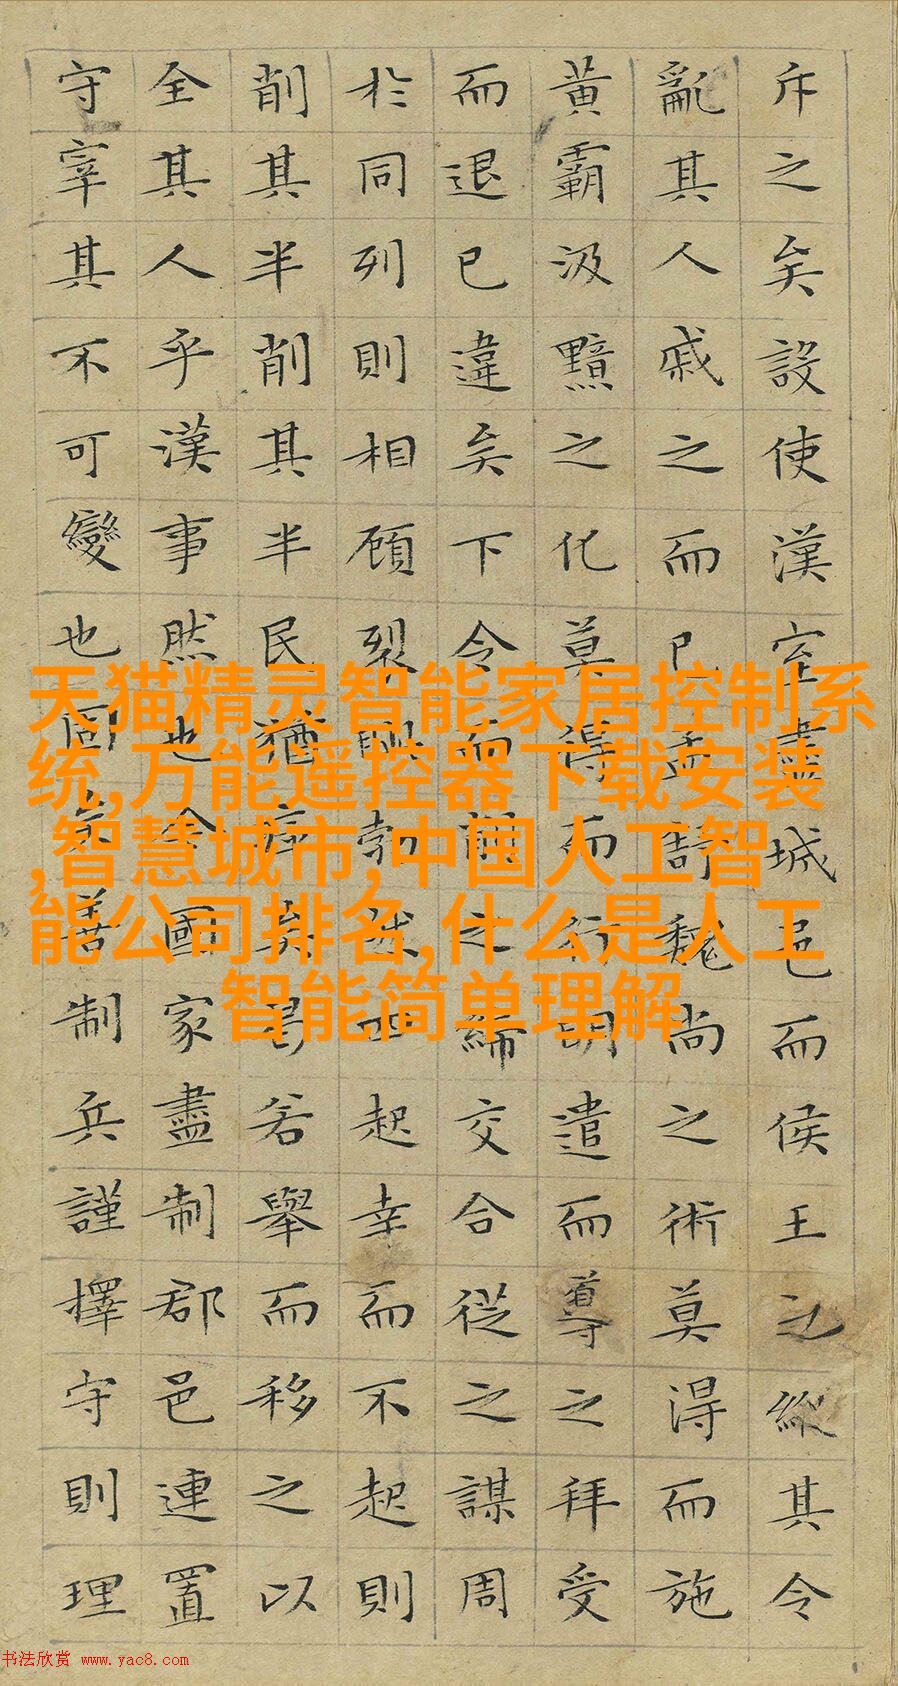 斥之矣設使漢室盡城邑而侯王之縱其令
亂其人戚之而已孟舒魏尚之術莫得而施
黃霸汲黯之化莫得而行明遣而導之拜受
而退已違矣下令而削之締交合從之謀周
於同列則相顧裂眦勃然而起幸而不起則
削其半削其半民猶瘁矣曷若舉而移之以
全其人乎漢事然也今國家盡制郡邑連置
守宰其不可變也固矣善制兵謹擇守則理
天猫精灵智能家居控制系
统,万能遥控器下载安装
,智慧城市,中国人工智
能公司排名,什么是人工
智能简单理解
书法欣赏 www.yac8.com